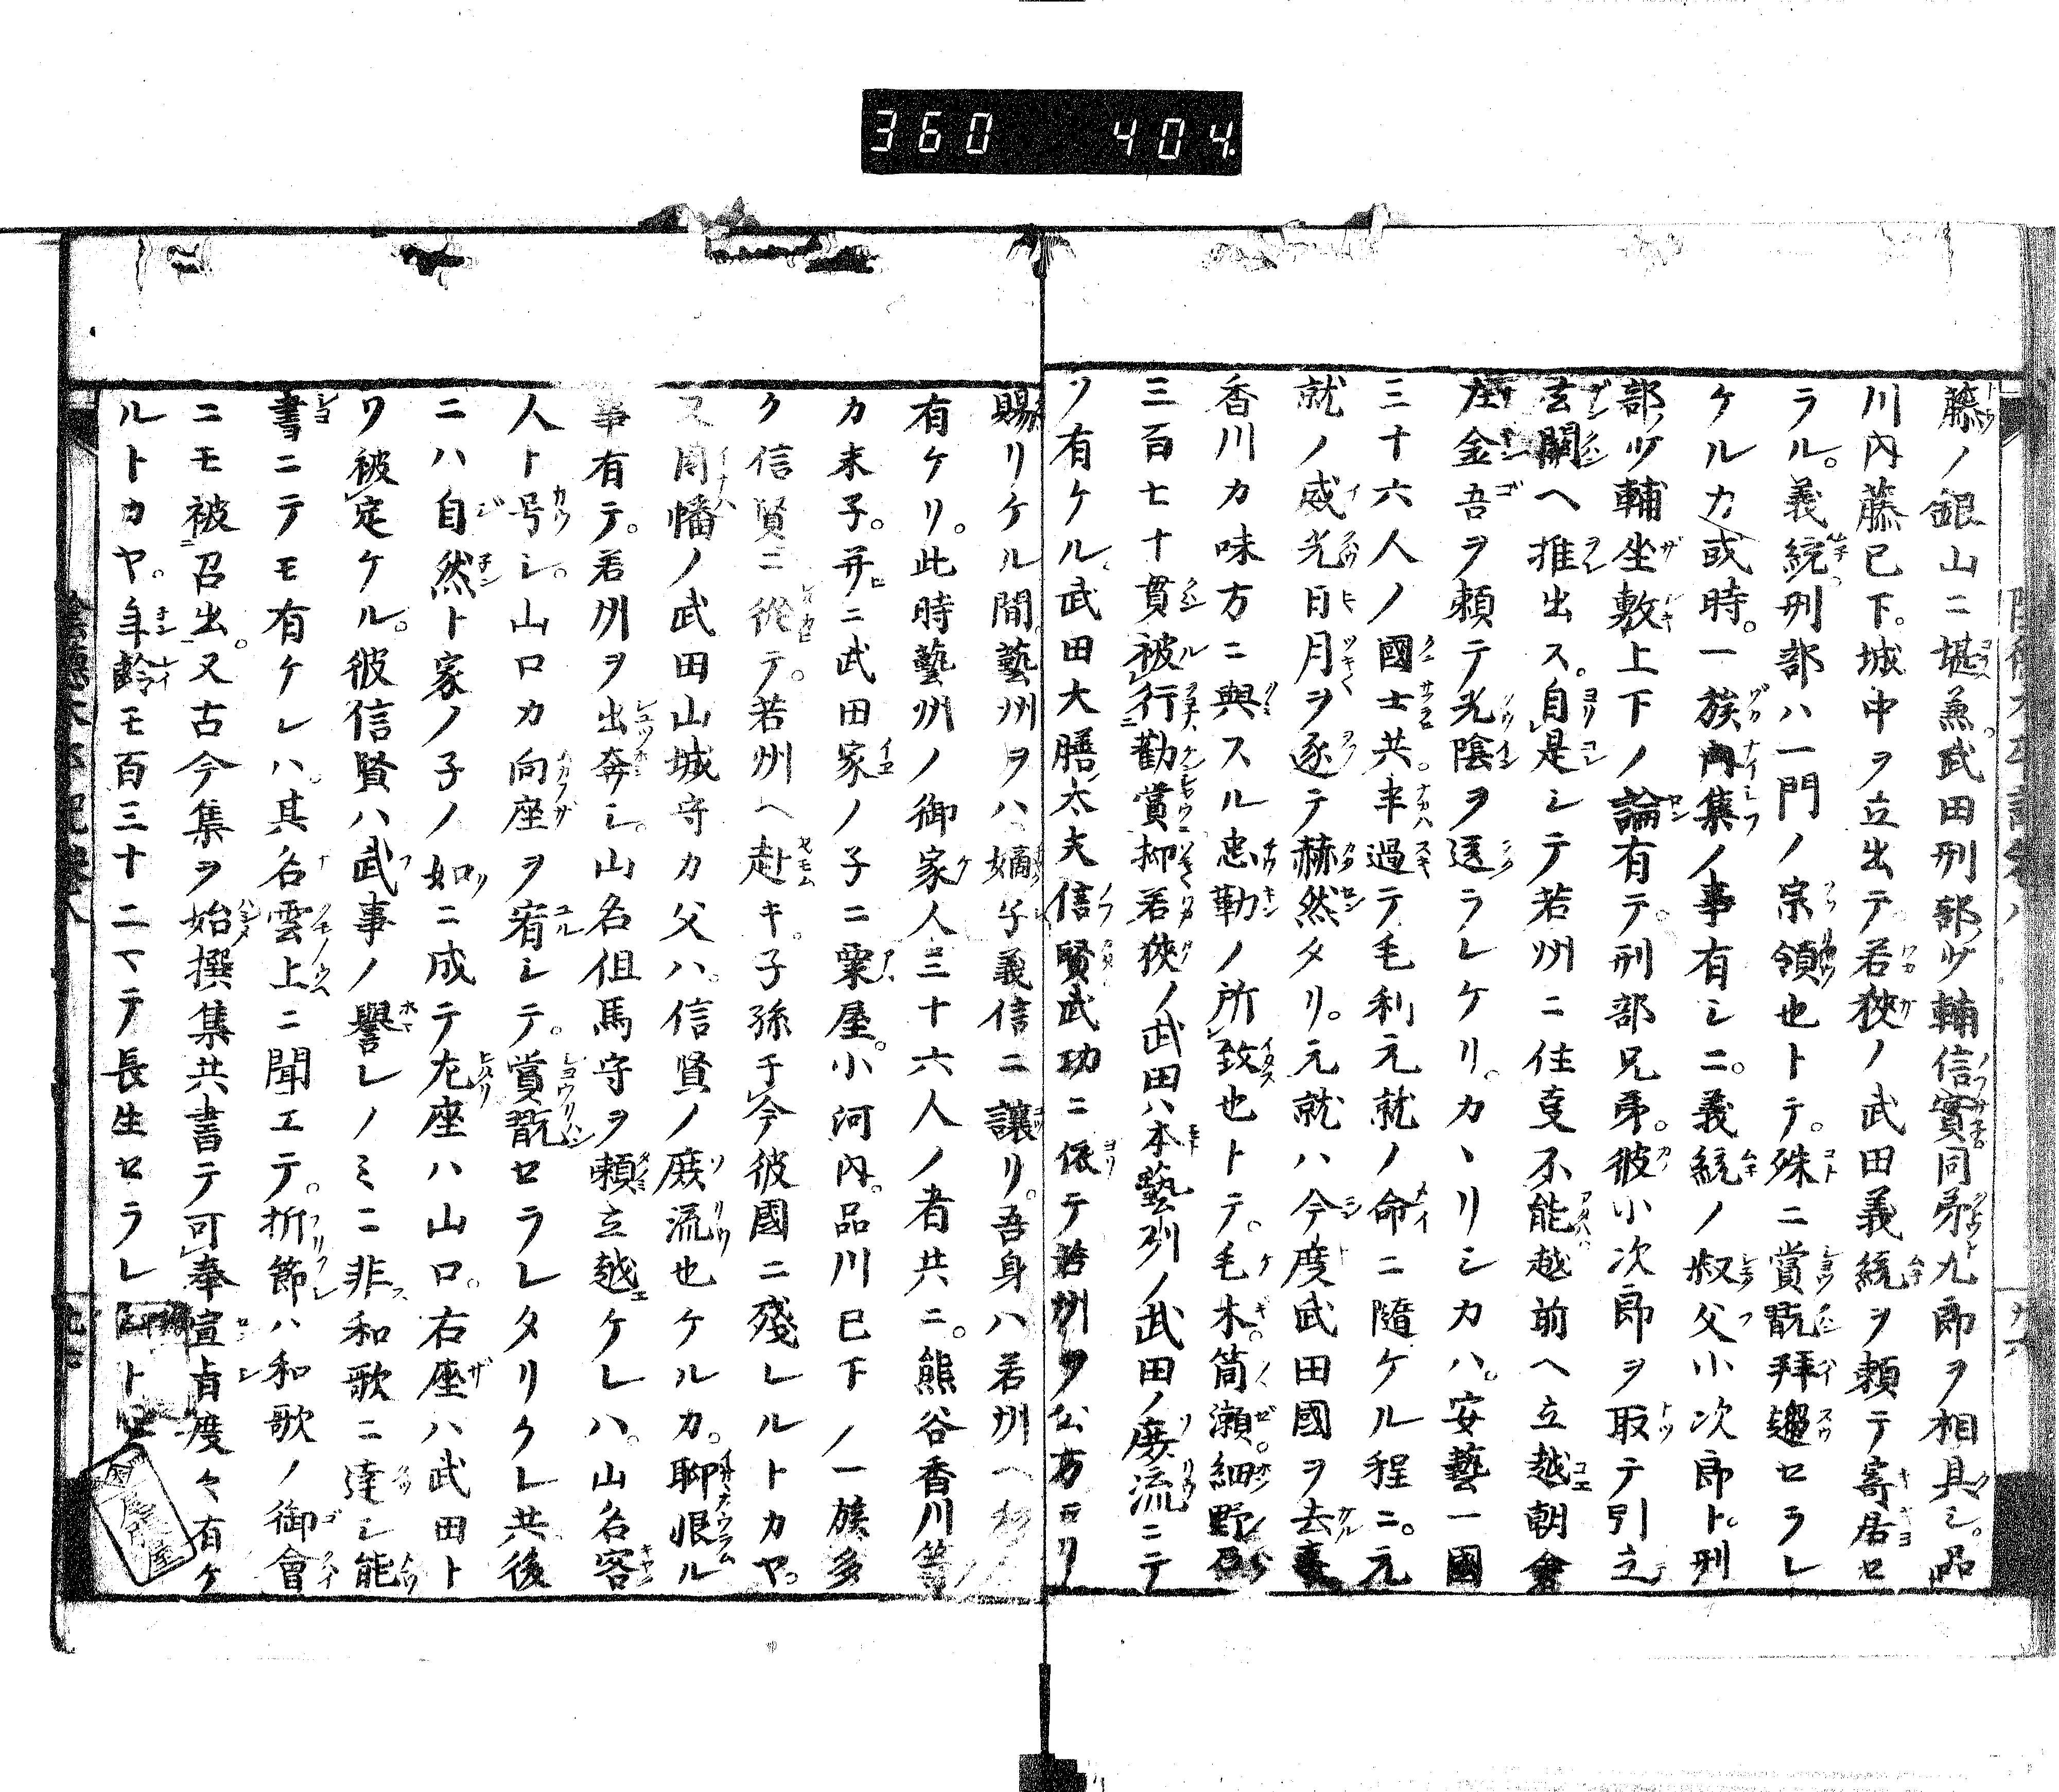 360 404
藤ノ銀山ニ堪兼。武田刑部少輔信實同弟九郎ヲ相具シ。品
川内藤已下。城中ヲ立出テ。若狹ノ武田義統ヲ頼テ寄居セ
ラル。義統刑部ハ一門ノ宗領也トテ。殊ニ賞翫拜趨セラレ
ケルカ或時。一族内集ノ事有シニ。義統ノ叔父小次郎ト。刑
部少輔坐敷上下ノ論有テ。刑部兄弟。彼小次郎ヲ取テ引立
玄關ヘ推出ス。自是シテ若州ニ住変不能越前ヘ立越朝倉
左金吾ヲ頼テ光陰ヲ送ラレケリ。カヽリシカハ。安藝一國
三十六人ノ國士共。半過テ毛利元就ノ命ニ隨ケル程ニ。元
就ノ威光日月ヲ逐テ赫然タリ。元就ハ今度武田國ヲ去事
香川カ味方ニ與スル忠勤ノ所致也トテ。毛木。筒瀬。細野
三百七十貫被行勸賞抑若狹ノ武田ハ本藝州ノ武田ノ庶流ニテ
ソ有ケル。武田大膳太夫信賢武功ニ依テ若州ヲ公方ヨリ
賜リケル間。藝州ヲハ嫡子義信ニ讓リ。吾身ハ若州ヘ移
有ケリ。此時藝州ノ御家人三十六人ノ者共ニ。熊谷香川等
カ末子。并ニ武田家ノ子ニ粟屋。小河内。品川已下ノ一族多
ク信賢ニ從テ。若州ヘ赴キ。子孫于今彼國ニ殘レルトカヤ。
又因幡ノ武田山城守カ父ハ。信賢ノ庶流也ケルカ。聊恨ル
事有テ。若州ヲ出奔シ。山名但馬守ヲ頼立越ケレハ。山名客
人ト号シ。山口カ向座ヲ宥シテ。賞翫セラレタリクレ共後
ニハ自然ト家ノ子ノ如ニ成テ左座ハ山口。右座ハ武田ト
ソ被定ケル。彼信賢ハ武事ノ譽レノミニ非和歌ニ達シ能
書ニテモ有ケレハ。其名雲上ニ聞エテ。折節ハ和歌ノ御會
ニモ被召出。又古今集ヲ始撰集共書テ可奉宣旨度々有ケ
ルトカヤ。年齡モ百三十二マテ長生セラレ